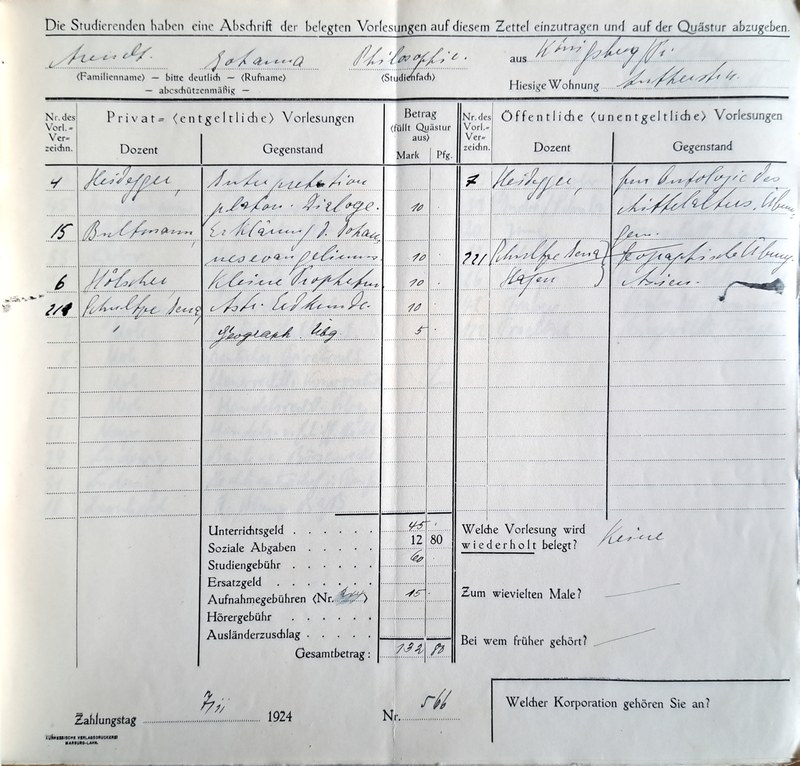 Die Studierenden haben eine Abschrift der belegten Vorlesungen auf diesem Zettel einzutragen und auf der Quästur abzugeben.
Arendt. Johanna Philosophie. aus Königsberg Pr.
(Familienname) — bitte deutlich — (Rufname) (Studienfach)
— abeschützenmäßig — Hiesige Wohnung Lutherstr.
Nr. des Vorl.-Verzeichn. Privat- (entgeltliche) Vorlesungen Betrag (füllt Quästur aus) Nr. des Vorl.-Verzeichn. Öffentliche (unentgeltliche) Vorlesungen
Dozent Gegenstand Mark Pfg. Dozent Gegenstand
4 Heidegger, Interpretation 7 Heidegger, Zur Ontologie des
platon. Dialoge. 10 Mittelalters. Übun-
15 Bultmann, Erklärung d. Johan- gen.
nesevangeliums. 10 221 Schultze Jena Geographische Übung.
6 Hölscher, Kleine Propheten 10 Hagen Asien.
214 Schultze Jena, Erdkunde. 10
" Geograph. Übg. 5
Unterrichtsgeld 45
Soziale Abgaben 12 80
Studiengebühr 60
Ersatzgeld
Aufnahmegebühren (Nr. ) 15
Hörergebühr
Ausländerzuschlag
Gesamtbetrag: 132 80
Welche Vorlesung wird wiederholt belegt? Keine
Zum wievielten Male?
Bei wem früher gehört?
Zahlungstag 1924 Nr. 566
Welcher Korporation gehören Sie an?